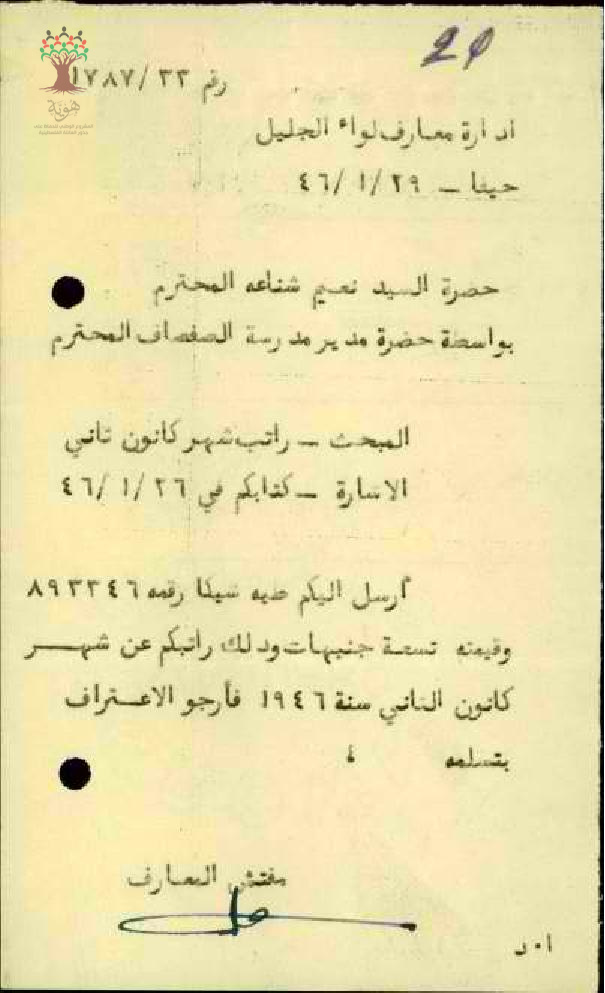 20
هوية
رقم ٣٣/١٧٨٧
ادارة معارف لواء الجليل
حيفا ـ ٢٩/١/٤٦
حضرة السيد نعيم شناعه المحترم
بواسطة حضرة مدير مدرسة الصفصاف المحترم
المبحث ـ راتب شهر كانون ثاني
الاشارة ـ كتابكم في ٢٦/١/٤٦
أرسل اليكم طيه شيكا رقمه ٨٩٣٣٤٦
وقيمته تسعة جنيهات وذلك راتبكم عن شهـــر
كانون الثاني سنة ١٩٤٦ فأرجو الاعـتراف
بتسلمه
مفتش المعارف